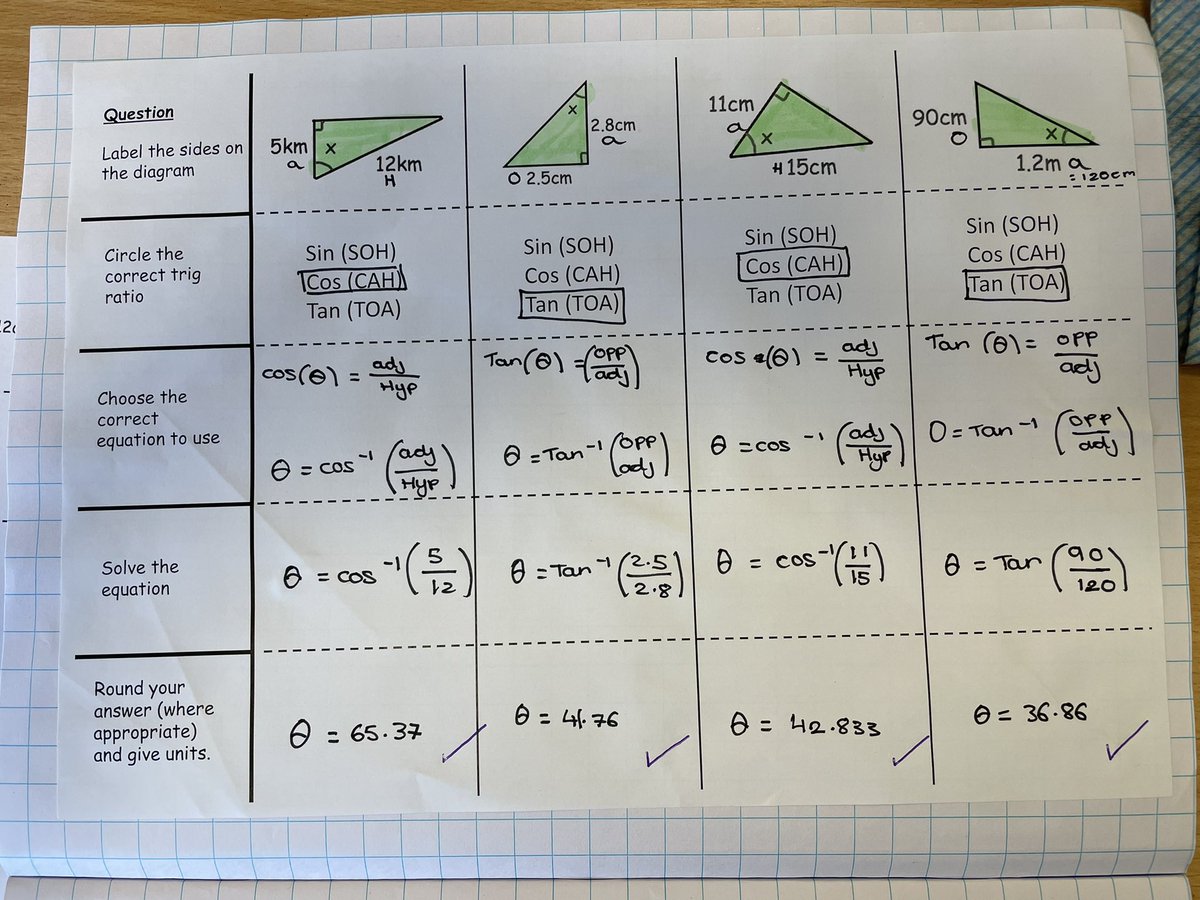 Question
Label the sides on
the diagram
5km
a
x
12km
H
x
2.8cm
a
O 2.5cm
11cm
a
x
H 15cm
90cm
O
x
1.2m a
= 120cm
Circle the
correct trig
ratio
Sin (SOH)
Cos (CAH)
Tan (TOA)
Sin (SOH)
Cos (CAH)
Tan (TOA)
Sin (SOH)
Cos (CAH)
Tan (TOA)
Sin (SOH)
Cos (CAH)
Tan (TOA)
Choose the
correct
equation to use
cos(θ) = adj/Hyp
θ = cos⁻¹ (adj/Hyp)
Tan(θ) = (opp/adj)
θ = Tan⁻¹ (opp/adj)
cos (θ) = adj/Hyp
θ = cos⁻¹ (adj/Hyp)
Tan (θ) = opp/adj
O = Tan⁻¹ (opp/adj)
Solve the
equation
θ = cos⁻¹ (5/12)
θ = Tan⁻¹ (2.5/2.8)
θ = cos⁻¹ (11/15)
θ = Tan (90/120)
Round your
answer (where
appropriate)
and give units.
θ = 65.37
θ = 41.76
θ = 42.833
θ = 36.86